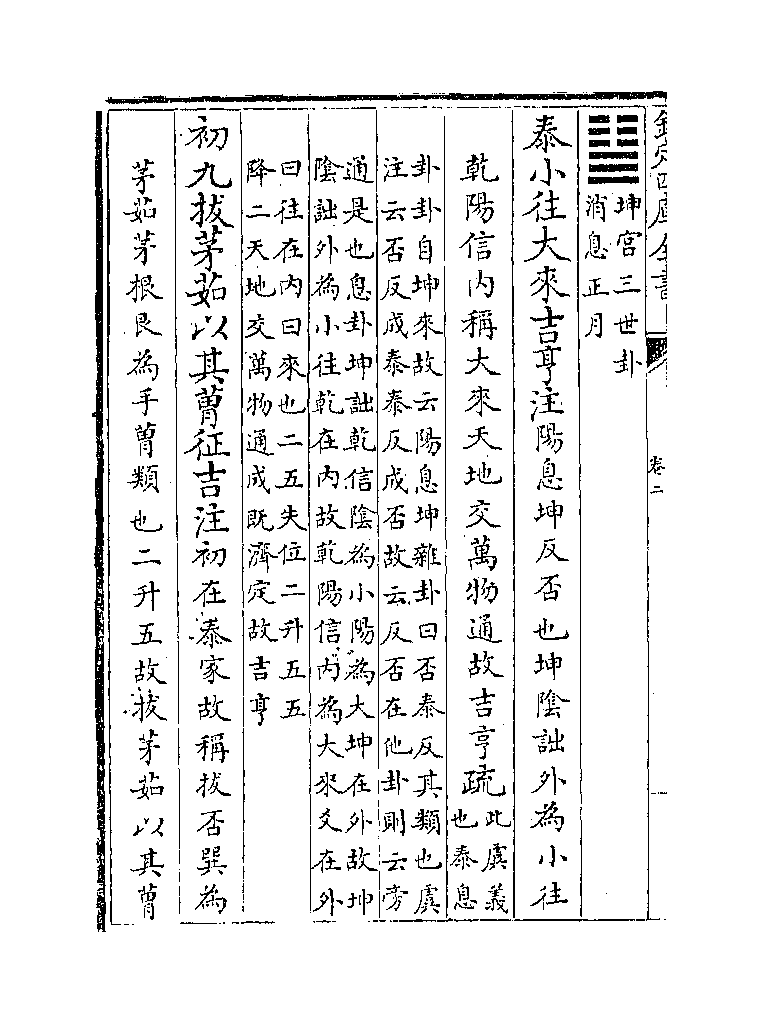 欽定四庫全書
卷二
坤宮三世卦
消息正月
泰小往大來吉亨注陽息坤反否也坤陰詘外為小往
乾陽信內稱大來天地交萬物通故吉亨疏此虞義
也泰息
卦卦自坤來故云陽息坤雜卦曰否泰反其類也虞
注云否反成泰泰反成否故云反否在他卦則云旁
通是也息卦坤詘乾信陰為小陽為大坤在外故坤
陰詘外為小往乾在內故乾陽信內為大來爻在外
曰往在內曰來也二五失位二升五五
降二天地交萬物通成既濟定故吉亨
初九拔茅茹以其䔰征吉注初在泰家故稱拔否巽為
茅茹茅根艮為手䔰類也二升五故拔茅茹以其䔰